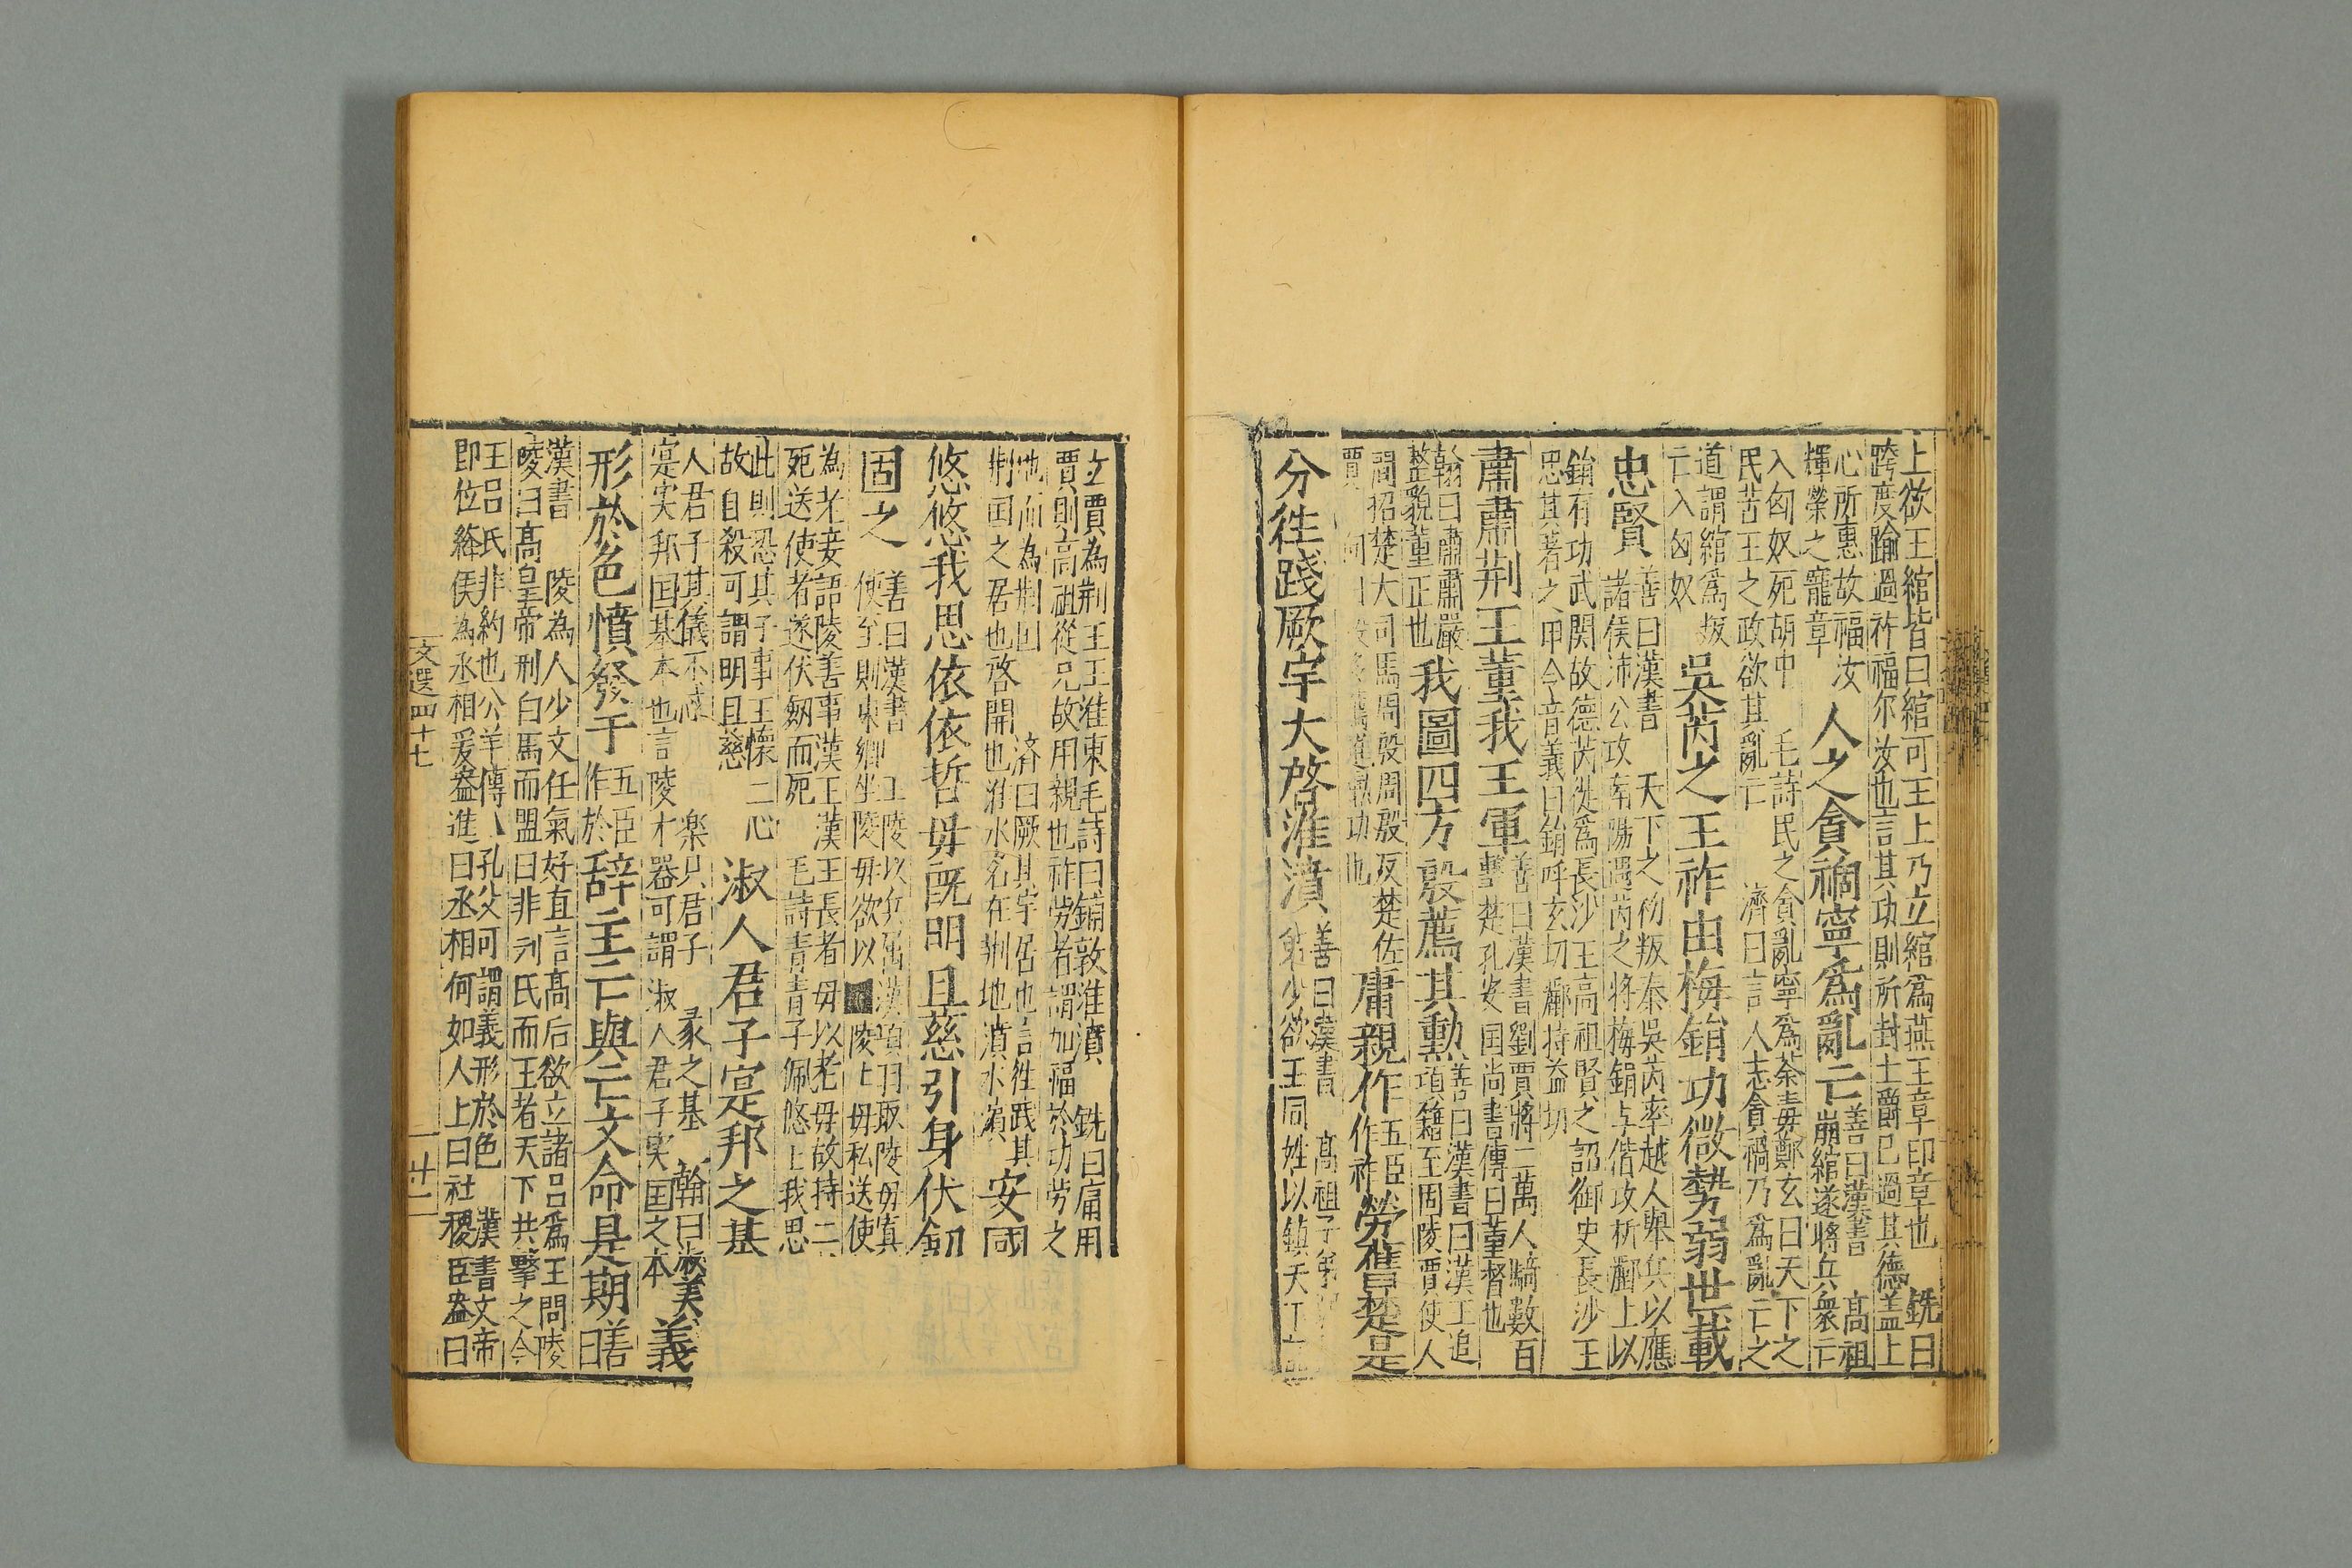 上欲王綰皆曰綰可王上乃立綰爲燕王章印章也　銑曰
跨度踰過祚福尔汝也言其功則所封土爵已過其德盖上
心所惠故福汝
輝榮之寵章
人之貪禍寧爲亂亡
善曰漢書　高祖
崩綰遂將兵衆亡
入匈奴死胡中　毛詩民之貪亂寧爲荼毒鄭玄曰天下之
民苦王之政欲其亂亡　濟曰言人志貪禍乃爲亂亡之
道謂綰爲叛
亡入匈奴
吳芮之王祚由梅鋗功微勢弱世載
忠賢
善曰漢書　天下之初叛秦吳芮率越人舉兵以應
諸侯沛公攻南陽遇芮之將梅鋗与偕攻析酈上以
鋗有功武関故德芮徙爲長沙王高祖賢之詔御史長沙王
忠其著之甲令音義曰鋗呼玄切酈持益切
肅肅荆王董我王軍
善曰漢書劉賈將二萬人騎數百
擊楚孔安国尚書傳曰董督也
翰曰肅肅嚴
整皃董正也
我圖四方殷薦其勲
善曰漢書曰漢王追
項籍至固陵賈使人
間招楚大司馬周殷周殷反楚佐
賈
庸親作
五臣
作祚
勞舊楚是
分徃踐厥宇大啓淮濆
善曰漢書　高祖子弱
弟少欲王同姓以鎮天下
立賈為荆王王淮東毛詩曰鋪敦淮濆　銑曰庸用
賈則高祖從兄故用親也祚勞者謂加福於功勞之
地而為荆国　济曰厥其宇居也言徃踐其
荆国之居也啓開也淮水名在荆地濆水濱
安國
悠悠我思依依哲母既明且慈引身伏劒
固之
善曰漢書　王陵以兵属漢項羽取陵母寘
使至則東鄉坐陵母欲以陵上母私送使
為老妾語陵善事漢王漢王長者毋以老毋故持二
死送使者遂伏劒而死　毛詩青青子佩悠上我思
此則恐其子事王懷二心
故自殺可謂明且慈
淑人君子寔邦之基
人君子其儀不忒　楽只君子　家之基　翰曰淑美
寔实邦国基本也言陵才器可謂淑人君子实国之本
義
形於色憤發于
五臣
作於
辞主亡與亡文命是期
善
曰
漢書　陵為人少文任氣好直言高后欲立諸呂爲王問陵
陵曰高皇帝刑白馬而盟曰非刘氏而王者天下共擊之今
王呂氏非約也公羊傳　孔父可謂義形於色　漢書文帝
即位絳侯為丞相爰盎進曰丞相何如人上曰社稷臣盎曰
文選四十七
廿二